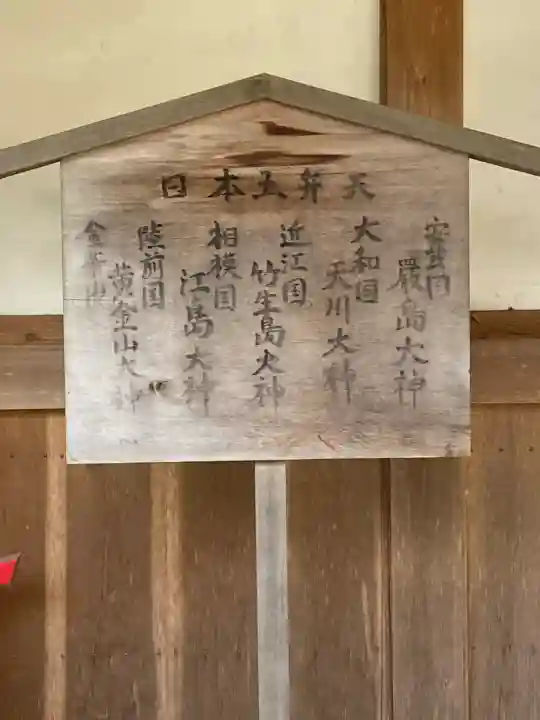 日本五弁天
安芸国
厳島大神
大和国
天川大神
近江国
竹生島大神
相模国
江島大神
陸前国
黄金山大神